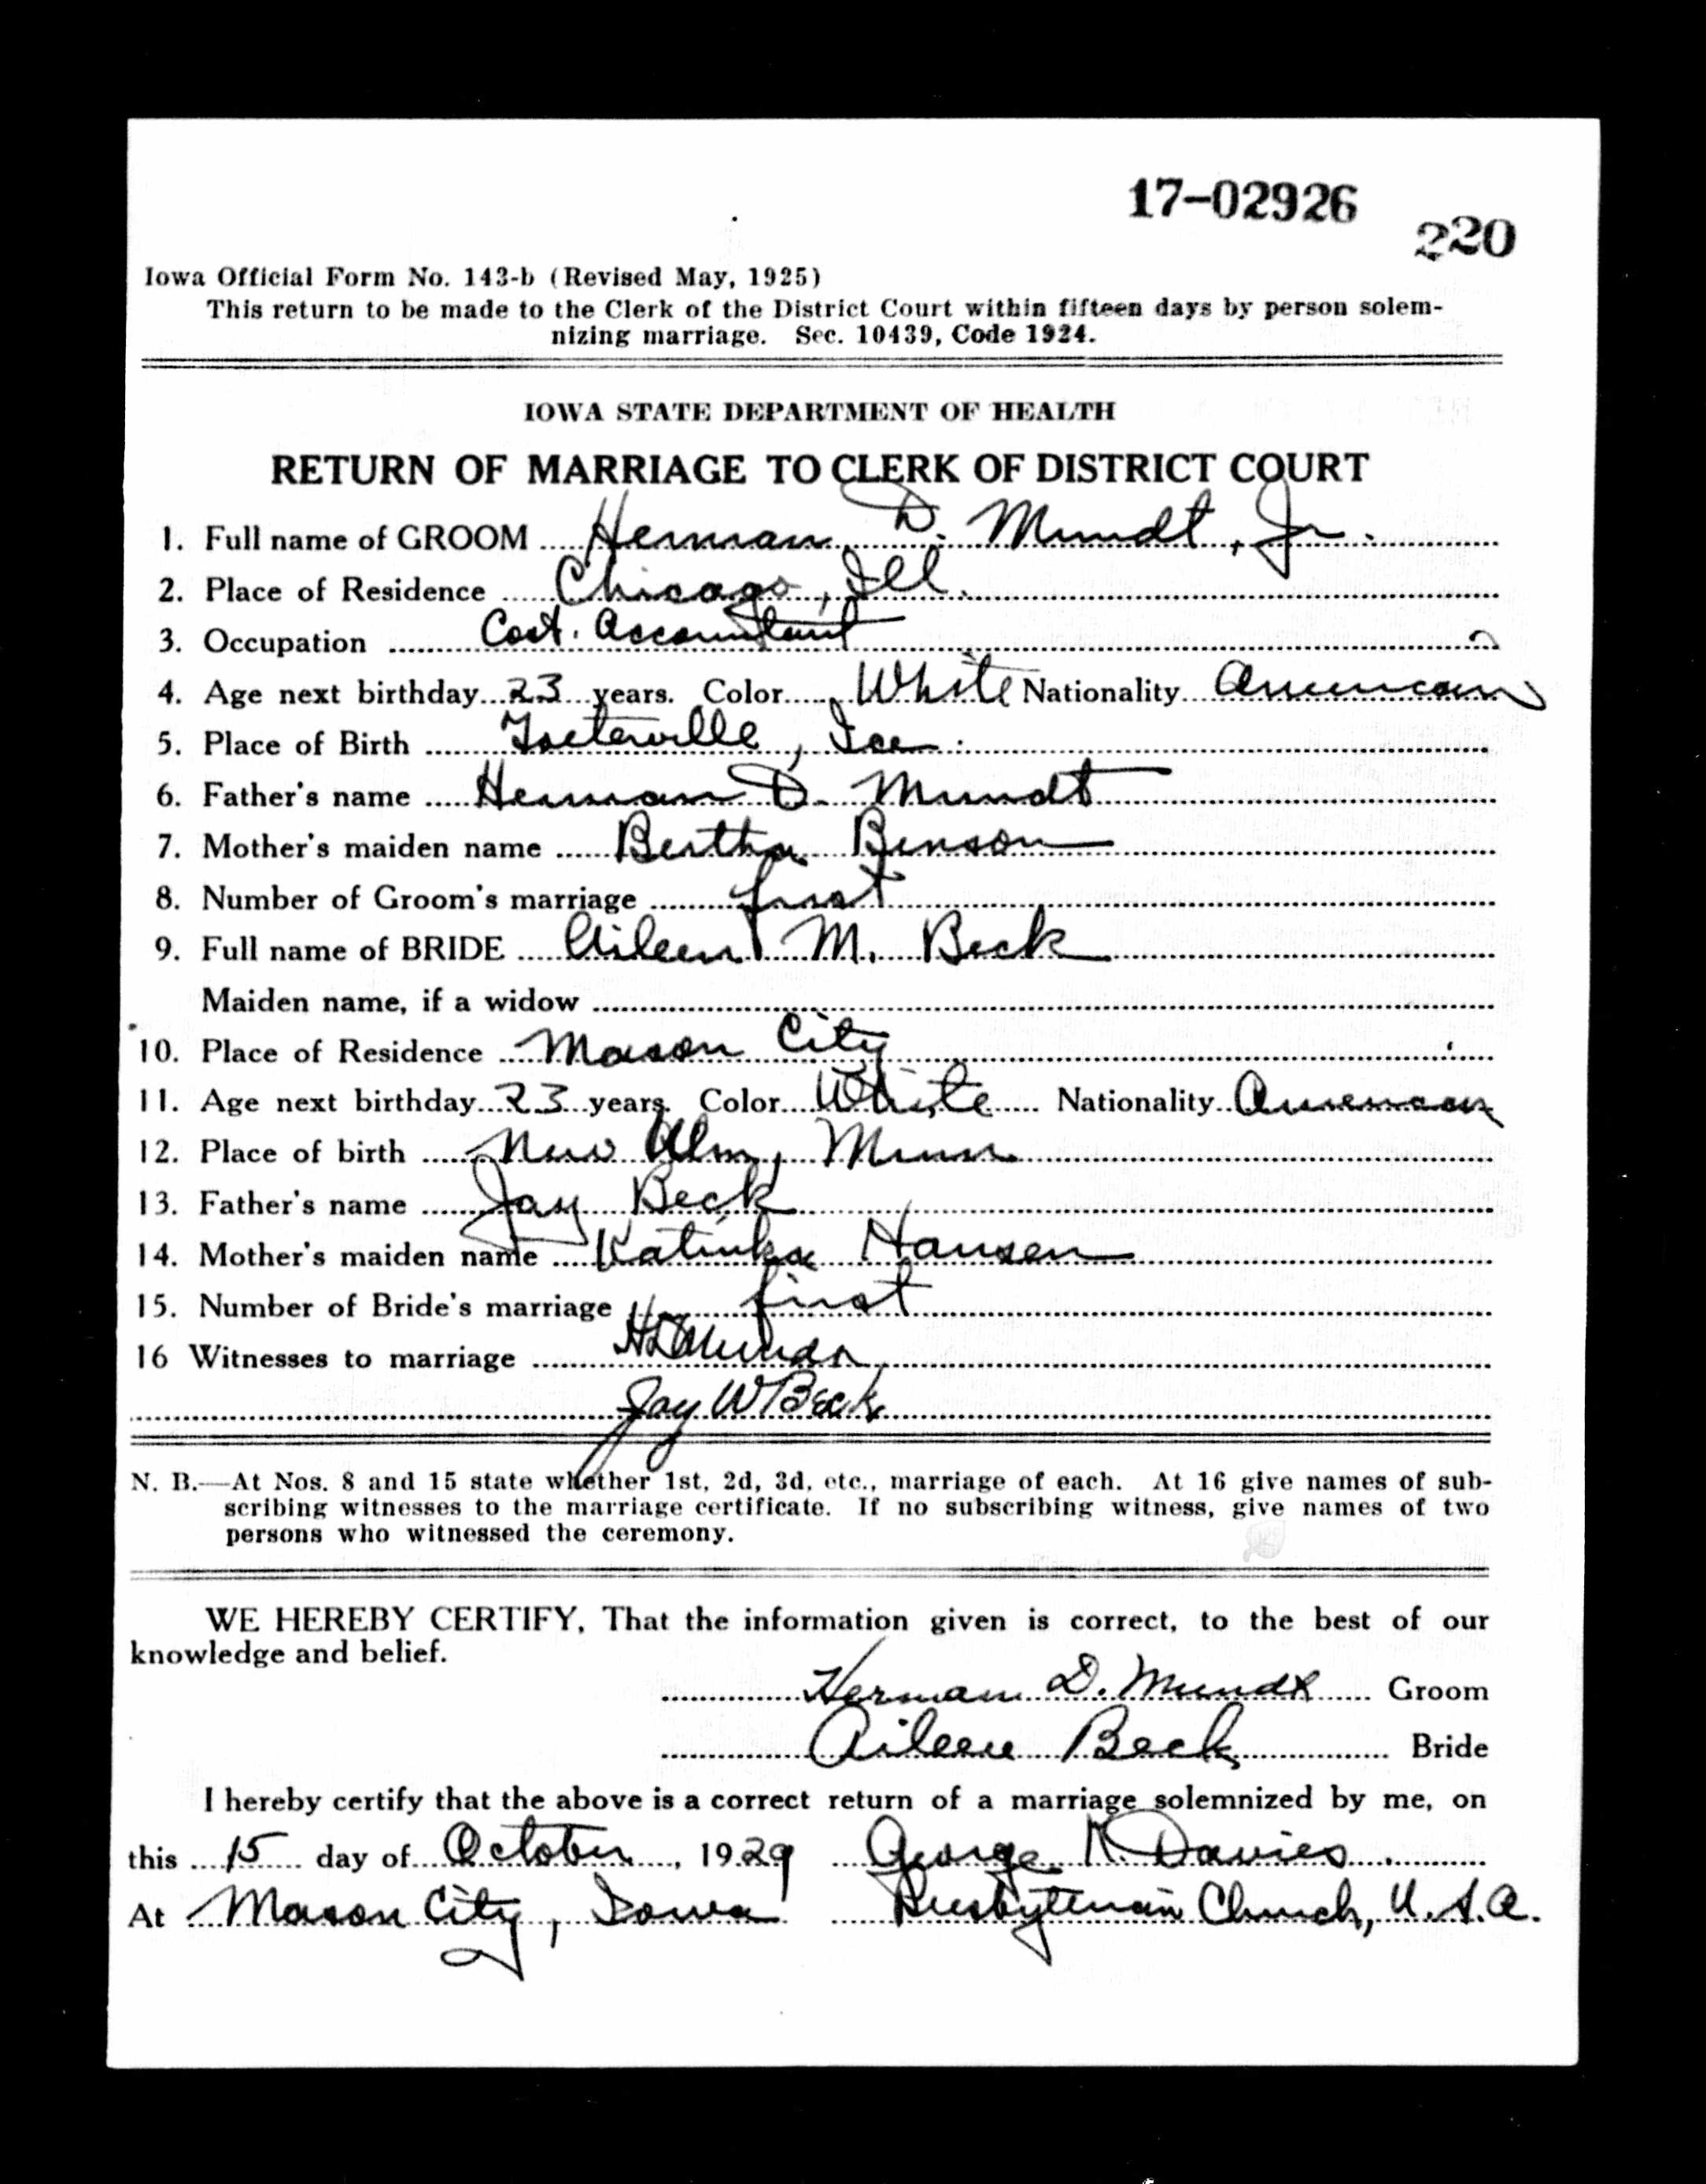 17-02926
220
Iowa Official Form No. 143-b (Revised May, 1925)
This return to be made to the Clerk of the District Court within fifteen days by person solem-
nizing marriage. Sec. 10439, Code 1924.
IOWA STATE DEPARTMENT OF HEALTH
RETURN OF MARRIAGE TO CLERK OF DISTRICT COURT
1. Full name of GROOM Herman D. Mundt, Jr.
2. Place of Residence Chicago, Ill.
3. Occupation Cost. Accountant
4. Age next birthday 23 years. Color White Nationality American
5. Place of Birth
6. Father's name Herman D. Mundt
7. Mother's maiden name Bertha Benson
8. Number of Groom's marriage first
9. Full name of BRIDE Aileen M. Beck
Maiden name, if a widow
10. Place of Residence Mason City
11. Age next birthday 23 years. Color White Nationality American
12. Place of birth New Ulm, Minn
13. Father's name Jay Beck
14. Mother's maiden name Katinka Hansen
15. Number of Bride's marriage first
16 Witnesses to marriage
Jay W Beck
N. B.—At Nos. 8 and 15 state whether 1st, 2d, 3d, etc., marriage of each. At 16 give names of sub-
scribing witnesses to the marriage certificate. If no subscribing witness, give names of two
persons who witnessed the ceremony.
WE HEREBY CERTIFY, That the information given is correct, to the best of our
knowledge and belief.
Herman D. Mundt Groom
Aileen Beck Bride
I hereby certify that the above is a correct return of a marriage solemnized by me, on
this 15 day of October, 1929 George K. Davies.
At Mason City, Iowa Presbyterian Church, U.S.A.